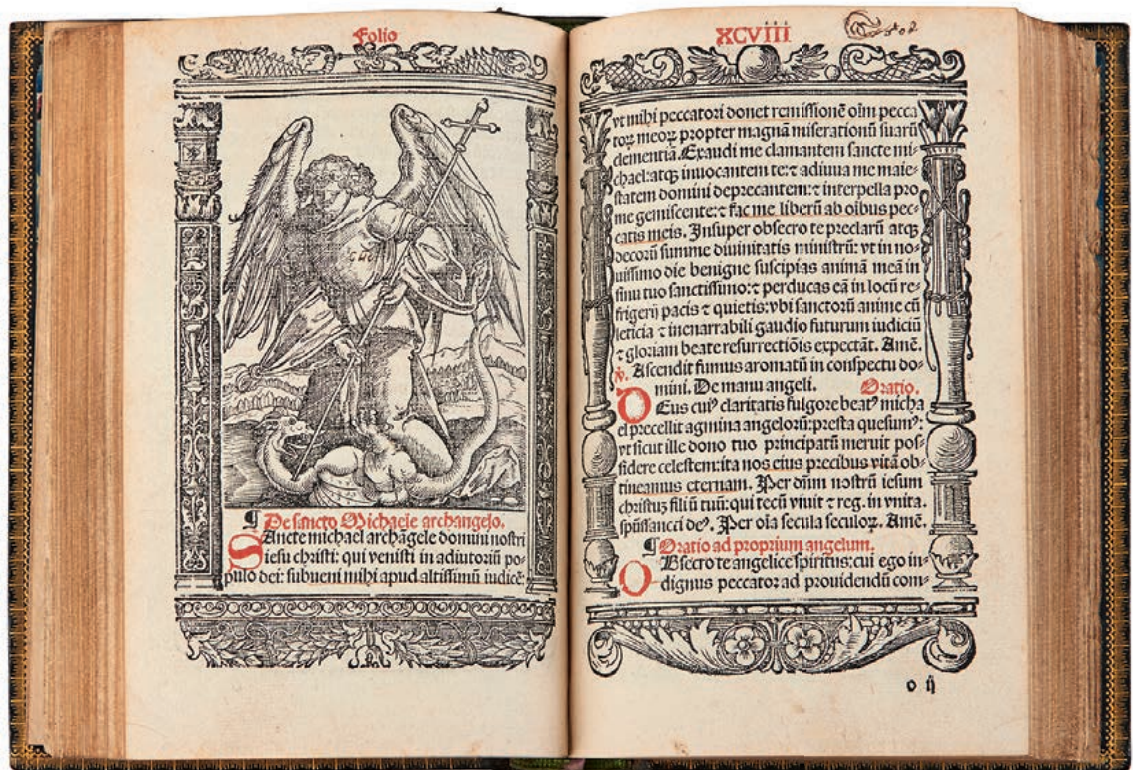 Folio
¶ De sancto Michaele archangelo.
SAncte michael archãgele domini nostri
iesu christi: qui venisti in adiutoriũ po-
pulo dei: subueni mihi apud altissimũ iudicẽ:
XCVIII
vt mihi peccatori donet remissionẽ oĩm pecca
toꝝ meoꝝ propter magnã miserationũ suarũ
clementiã. Exaudi me clamantem sancte mi-
chael: atqꝫ inuocantem te: ⁊ adiuua me maie-
statem domini deprecantem: ⁊ interpella pro
me gemiscente: ⁊ fac me liberũ ab oĩbus pec-
catis meis. Insuper obsecro te preclarũ atqꝫ
decorũ summe diuinitatis ministrũ: vt in no-
uissimo die benigne suscipias animã meã in
sinu tuo sanctissimo: ⁊ perducas eã in locũ re-
frigerij pacis ⁊ quietis: vbi sanctorũ anime cũ
leticia ⁊ inenarrabili gaudio futurum iudiciũ
⁊ gloriam beate resurrectiõis expectãt. Amẽ.
℣. Ascendit fumus aromatũ in conspectu do-
mini. De manu angeli. Oratio.
DEus cuiꝰ claritatis fulgore beatꝰ micha
el precellit agmina angelorũ: presta quesumꝰ:
vt sicut ille dono tuo principatũ meruit pos-
sidere celestem: ita nos eius precibus vitã ob-
tineamus eternam. Per dñm nostrũ iesum
christuꝫ filiũ tuũ: qui tecũ viuit ⁊ reg. in vnita.
spũssancti deꝰ. Per oĩa secula seculoꝝ. Amẽ.
¶ Oratio ad proprium angelum.
OBsecro te angelice spiritus: cui ego in-
dignus peccator ad prouidendũ com-
o ij